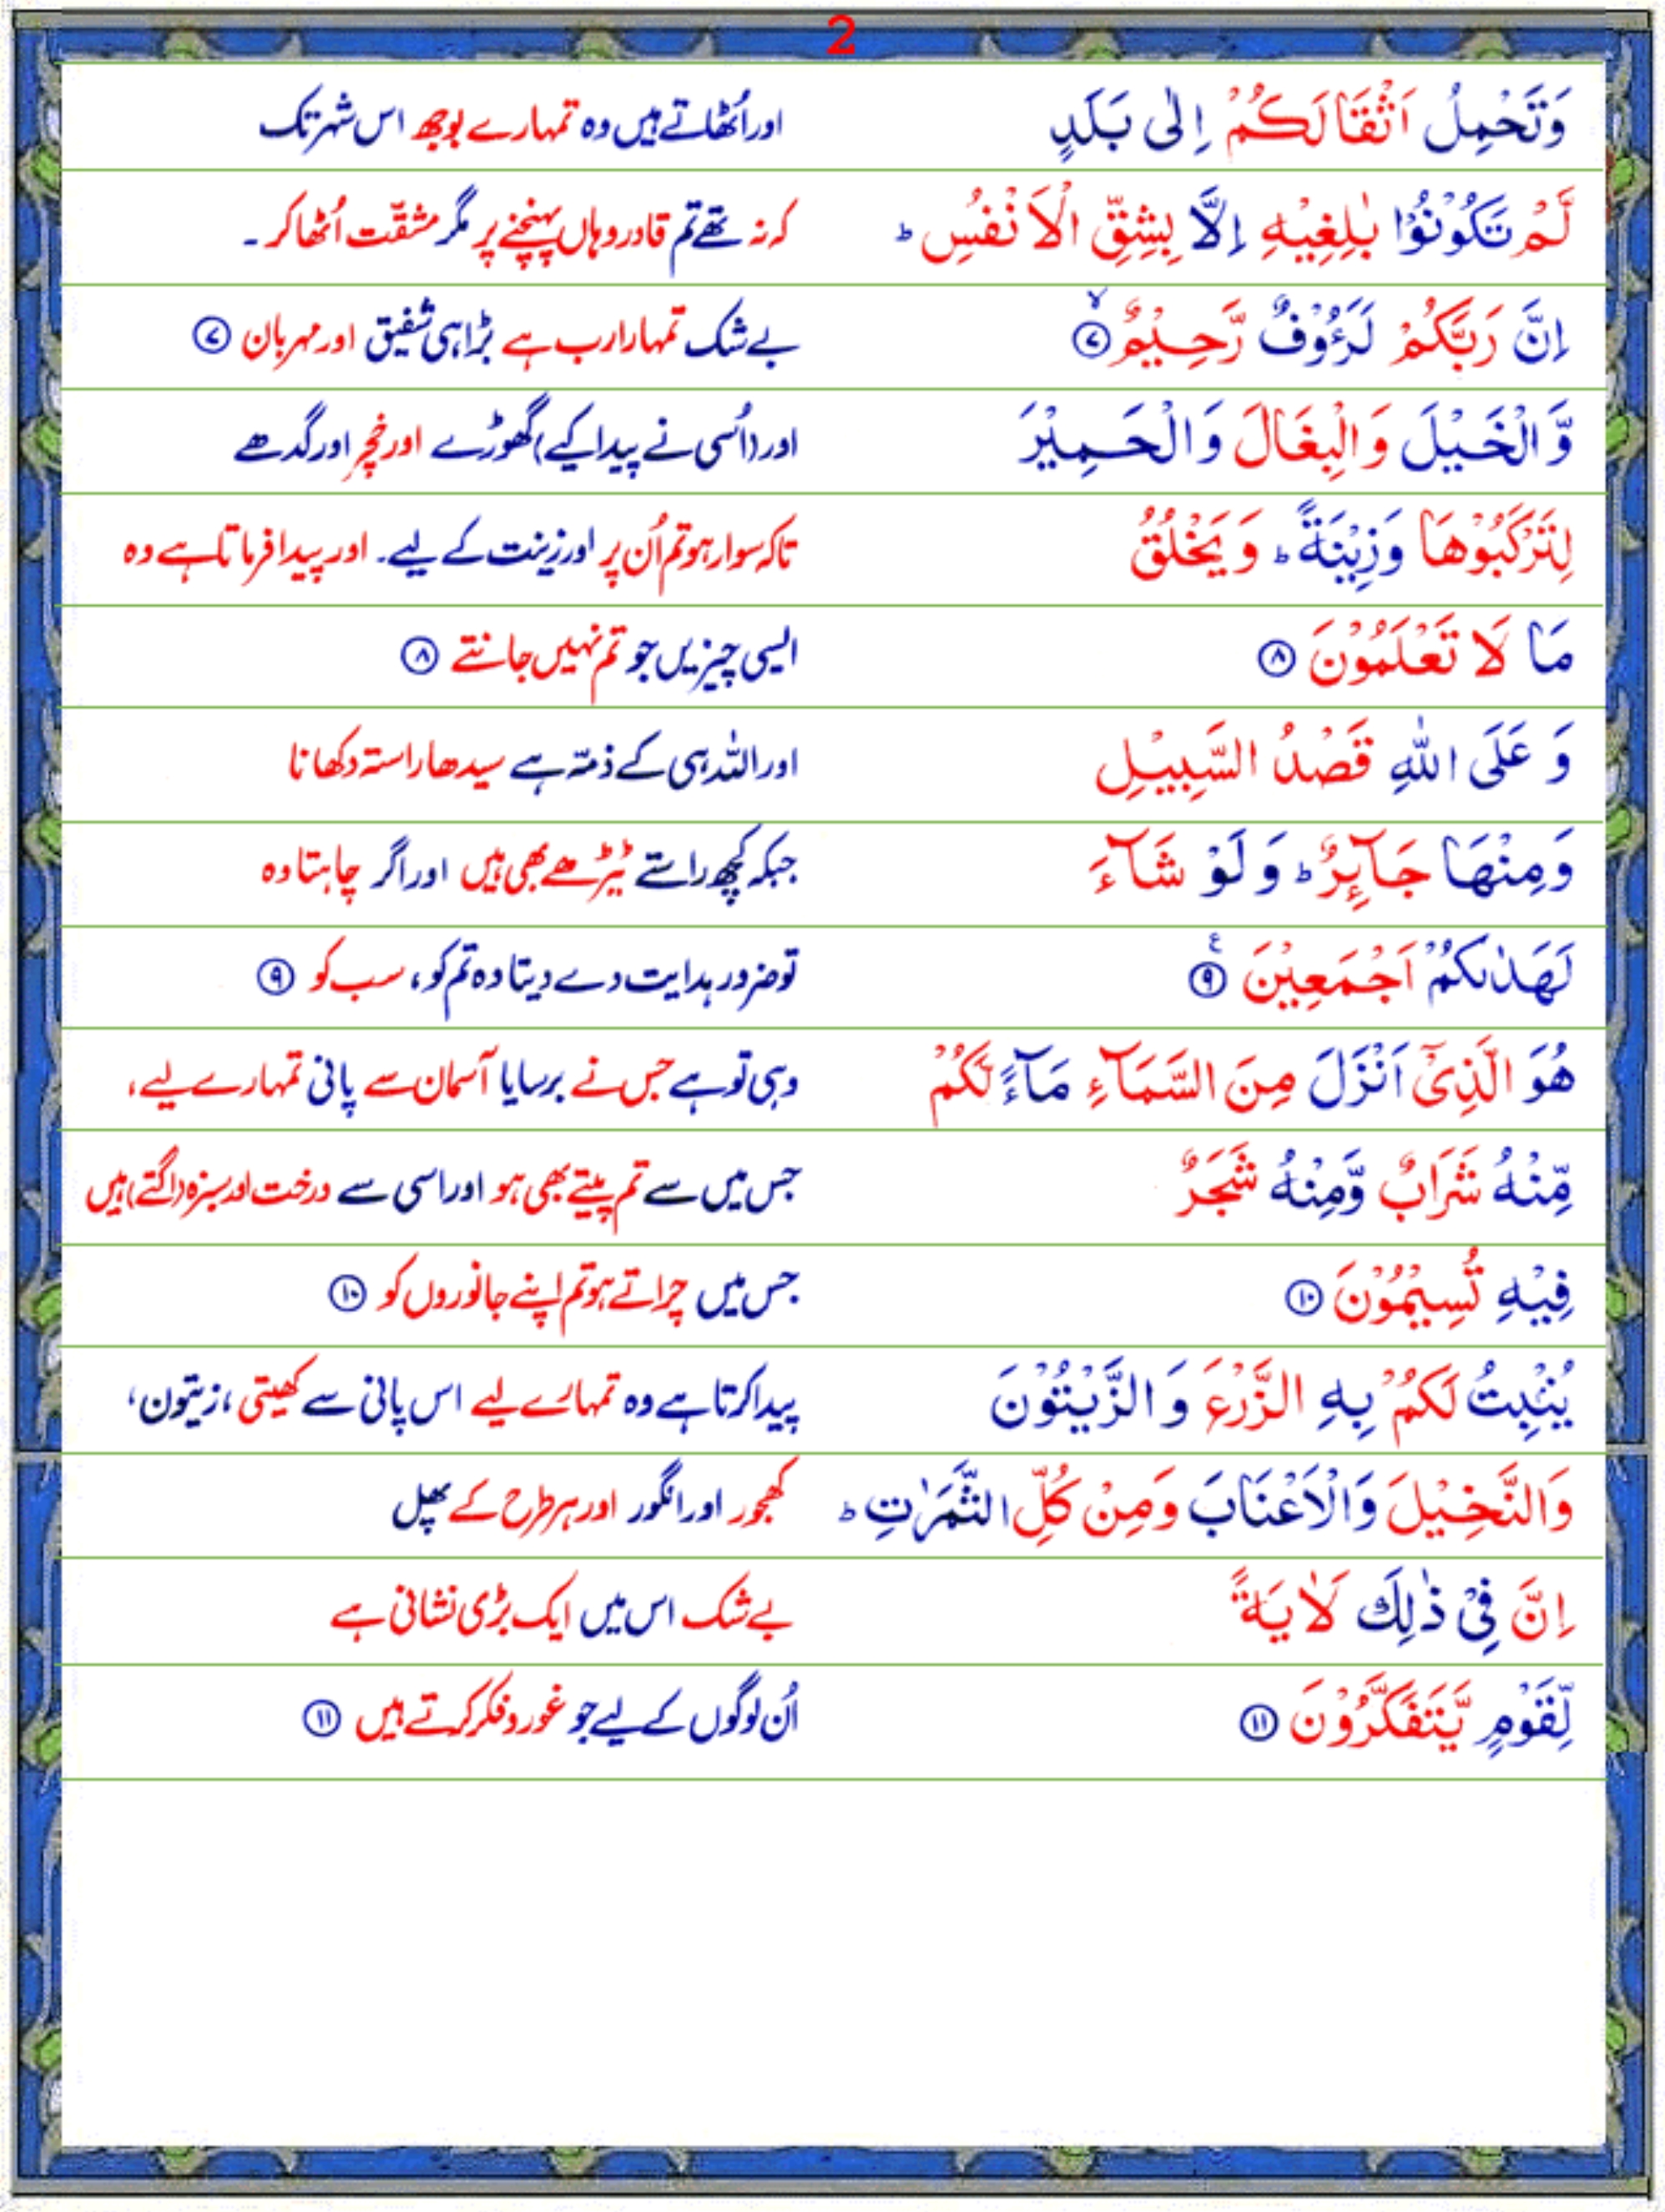 2
وَتَحْمِلُ اَثْقَالَكُمْ اِلٰى بَلَدٍ اور اُٹھاتے ہیں وہ تمہارے بوجھ اس شہر تک
لَّمْ تَكُوْنُوْا بٰلِغِيْهِ اِلَّا بِشِقِّ الْاَنْفُسِ ؕ کہ نہ تھے تم قادر وہاں پہنچنے پر مگر مشقّت اُٹھا کر ۔
اِنَّ رَبَّكُمْ لَرَءُوْفٌ رَّحِيْمٌ ۙ ﴿۷﴾ بے شک تمہارا رب ہے بڑا ہی شفیق اور مہربان ﴿۷﴾
وَّالْخَيْلَ وَالْبِغَالَ وَالْحَمِيْرَ اور (اُسی نے پیدا کیے) گھوڑے اور خچر اور گدھے
لِتَرْكَبُوْهَا وَزِيْنَةً ؕ وَيَخْلُقُ تاکہ سوار ہو تم اُن پر اور زینت کے لیے۔ اور پیدا فرماتا ہے وہ
مَا لَا تَعْلَمُوْنَ ﴿۸﴾ ایسی چیزیں جو تم نہیں جانتے ﴿۸﴾
وَ عَلَى اللّٰهِ قَصْدُ السَّبِيْلِ اور اللہ ہی کے ذمّہ ہے سیدھا راستہ دکھانا
وَمِنْهَا جَآئِرٌ ؕ وَلَوْ شَآءَ جبکہ کچھ راستے ٹیڑھے بھی ہیں اور اگر چاہتا وہ
لَهَدٰٮكُمْ اَجْمَعِيْنَ ﴿۹﴾ ع تو ضرور ہدایت دے دیتا وہ تم کو، سب کو ﴿۹﴾
هُوَ الَّذِىْۤ اَنْزَلَ مِنَ السَّمَآءِ مَآءً لَّكُمْ وہی تو ہے جس نے برسایا آسمان سے پانی تمہارے لیے،
مِّنْهُ شَرَابٌ وَّمِنْهُ شَجَرٌ جس میں سے تم پیتے بھی ہو اور اسی سے درخت اور سبزہ (اگتے) ہیں
فِيْهِ تُسِيْمُوْنَ ﴿۱۰﴾ جس میں چراتے ہو تم اپنے جانوروں کو ﴿۱۰﴾
يُنْۢبِتُ لَكُمْ بِهِ الزَّرْعَ وَالزَّيْتُوْنَ پیدا کرتا ہے وہ تمہارے لیے اس پانی سے کھیتی، زیتون،
وَالنَّخِيْلَ وَالْاَعْنَابَ وَمِنْ كُلِّ الثَّمَرٰتِ ؕ کھجور اور انگور اور ہر طرح کے پھل
اِنَّ فِىْ ذٰلِكَ لَاٰيَةً بے شک اس میں ایک بڑی نشانی ہے
لِّقَوْمٍ يَّتَفَكَّرُوْنَ ﴿۱۱﴾ اُن لوگوں کے لیے جو غور و فکر کرتے ہیں ﴿۱۱﴾